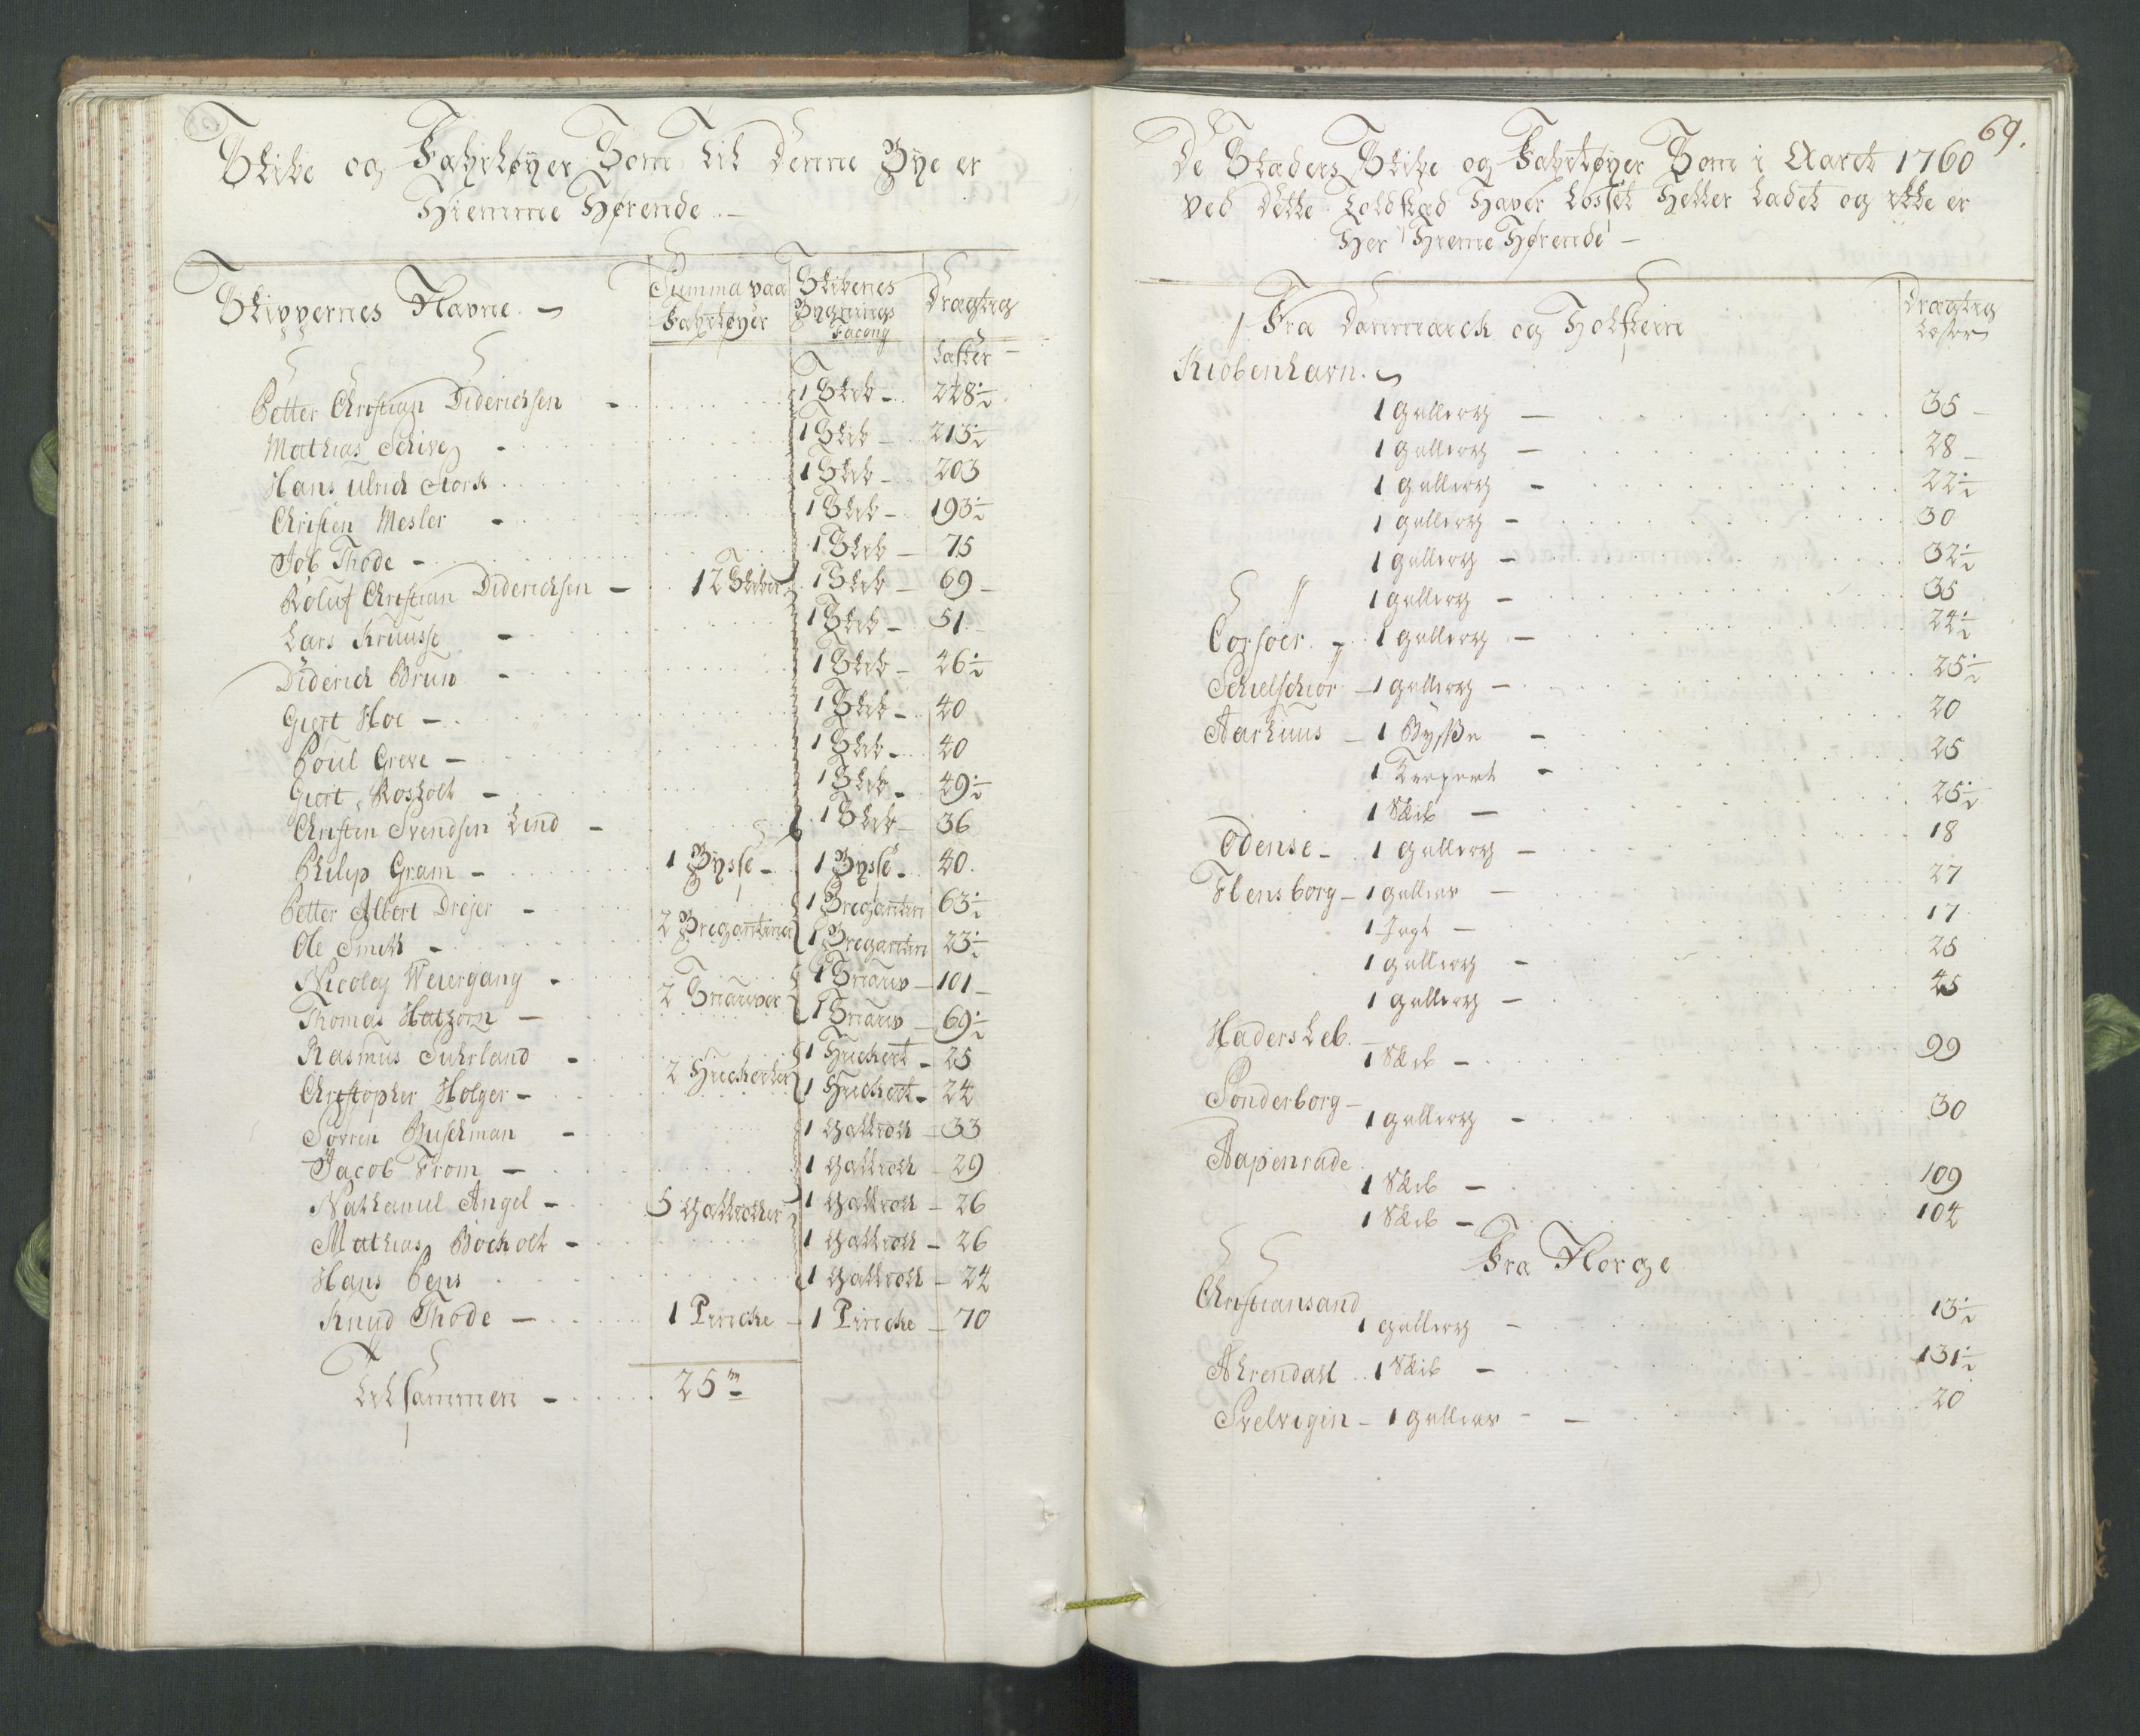 Skibe og Fahrtøyer Som til denne Bye er
Hiemme Hørende.
Skippernes Navne. Summa paa Fahrtøyer Skibenes Bygnings Facong Drægtig Læster
Petter Christian Diderichsen - 1 Skib - 228½
Mathias Schive - 1 Skib - 213½
Hans Ulrich Stork 1 Skib - 203
Christen Mesler - 1 Skib - 193½
Job Thode - 1 Skib - 75
Roluf Christian Diderichsen - 12 Skiber 1 Skib - 69
Lars Kruusse - 1 Skib - 51
Diderich Brun - 1 Skib - 46½
Giert Hoe - 1 Skib - 40
Poul Greve - 1 Skib - 40
Giert Rosholt - 1 Skib - 49½
Christen Svendsen Lind - 1 Skib - 36
Philip Gram - 1 Bysse - 1 Bysse - 40
Petter Albert Drejer - 1 Bregantin 63½
Ole Smith - 2 Bregantiner 1 Bregantin 23½
Nicoley Weiergang - 1 Snauv - 101
Thomas Hatzorn - 2 Snauver 1 Snauv - 69½
Rasmus Suhrland - 1 Huckert - 25
Christopher Holger - 2 Huckerter 1 Huckert - 24
Sørren Buschman - 1 Galliott - 33
Jacob From - 1 Galliott - 29
Nathaniel Angel - 5 Galliotter 1 Galliott - 26
Mathias Bocholt - 1 Galliott - 26
Hans Pens 1 Galliott - 24
Knud Thode - 1 Pincke - 1 Pincke - 70
Tilsammen - 25
69.
De Stæders Skibe og Fahrtøyer Som i Aaret 1760
ved dette Toldsted Haver Losset Heller Ladet og ikke er
Her Hieme Hørende -
Fra Danmarck og Holsteen Drægtig Læster
Kiøbenhavn.
1 Galliorth - 35
1 Galliorth - 28
1 Galliorth - 22½
1 Galliorth - 30
1 Galliorth - 32½
1 Galliorth - 35
Corsøer - 1 Galliorth - 24½
Schielschiør - 1 Galliorth - 25½
Aarhuus - 1 Bysse - 20
1 Krejert - 25
1 Skib - 25½
Odense - 1 Galliorth - 18
Flensborg - 1 Gallias - 27
1 Jagt - 17
1 Galliorth - 25
1 Galliorth - 45
Hadersleb.
1 Skib - 99
Sonderborg -
1 Galliorth - 30
Aapenrade
1 Skib - 109
1 Skib - 104
Fra Norge
Christiansand
1 Galliorth - 13½
Ahrendall 1 Skib - 131½
Svelvigen - 1 Gallias - 20